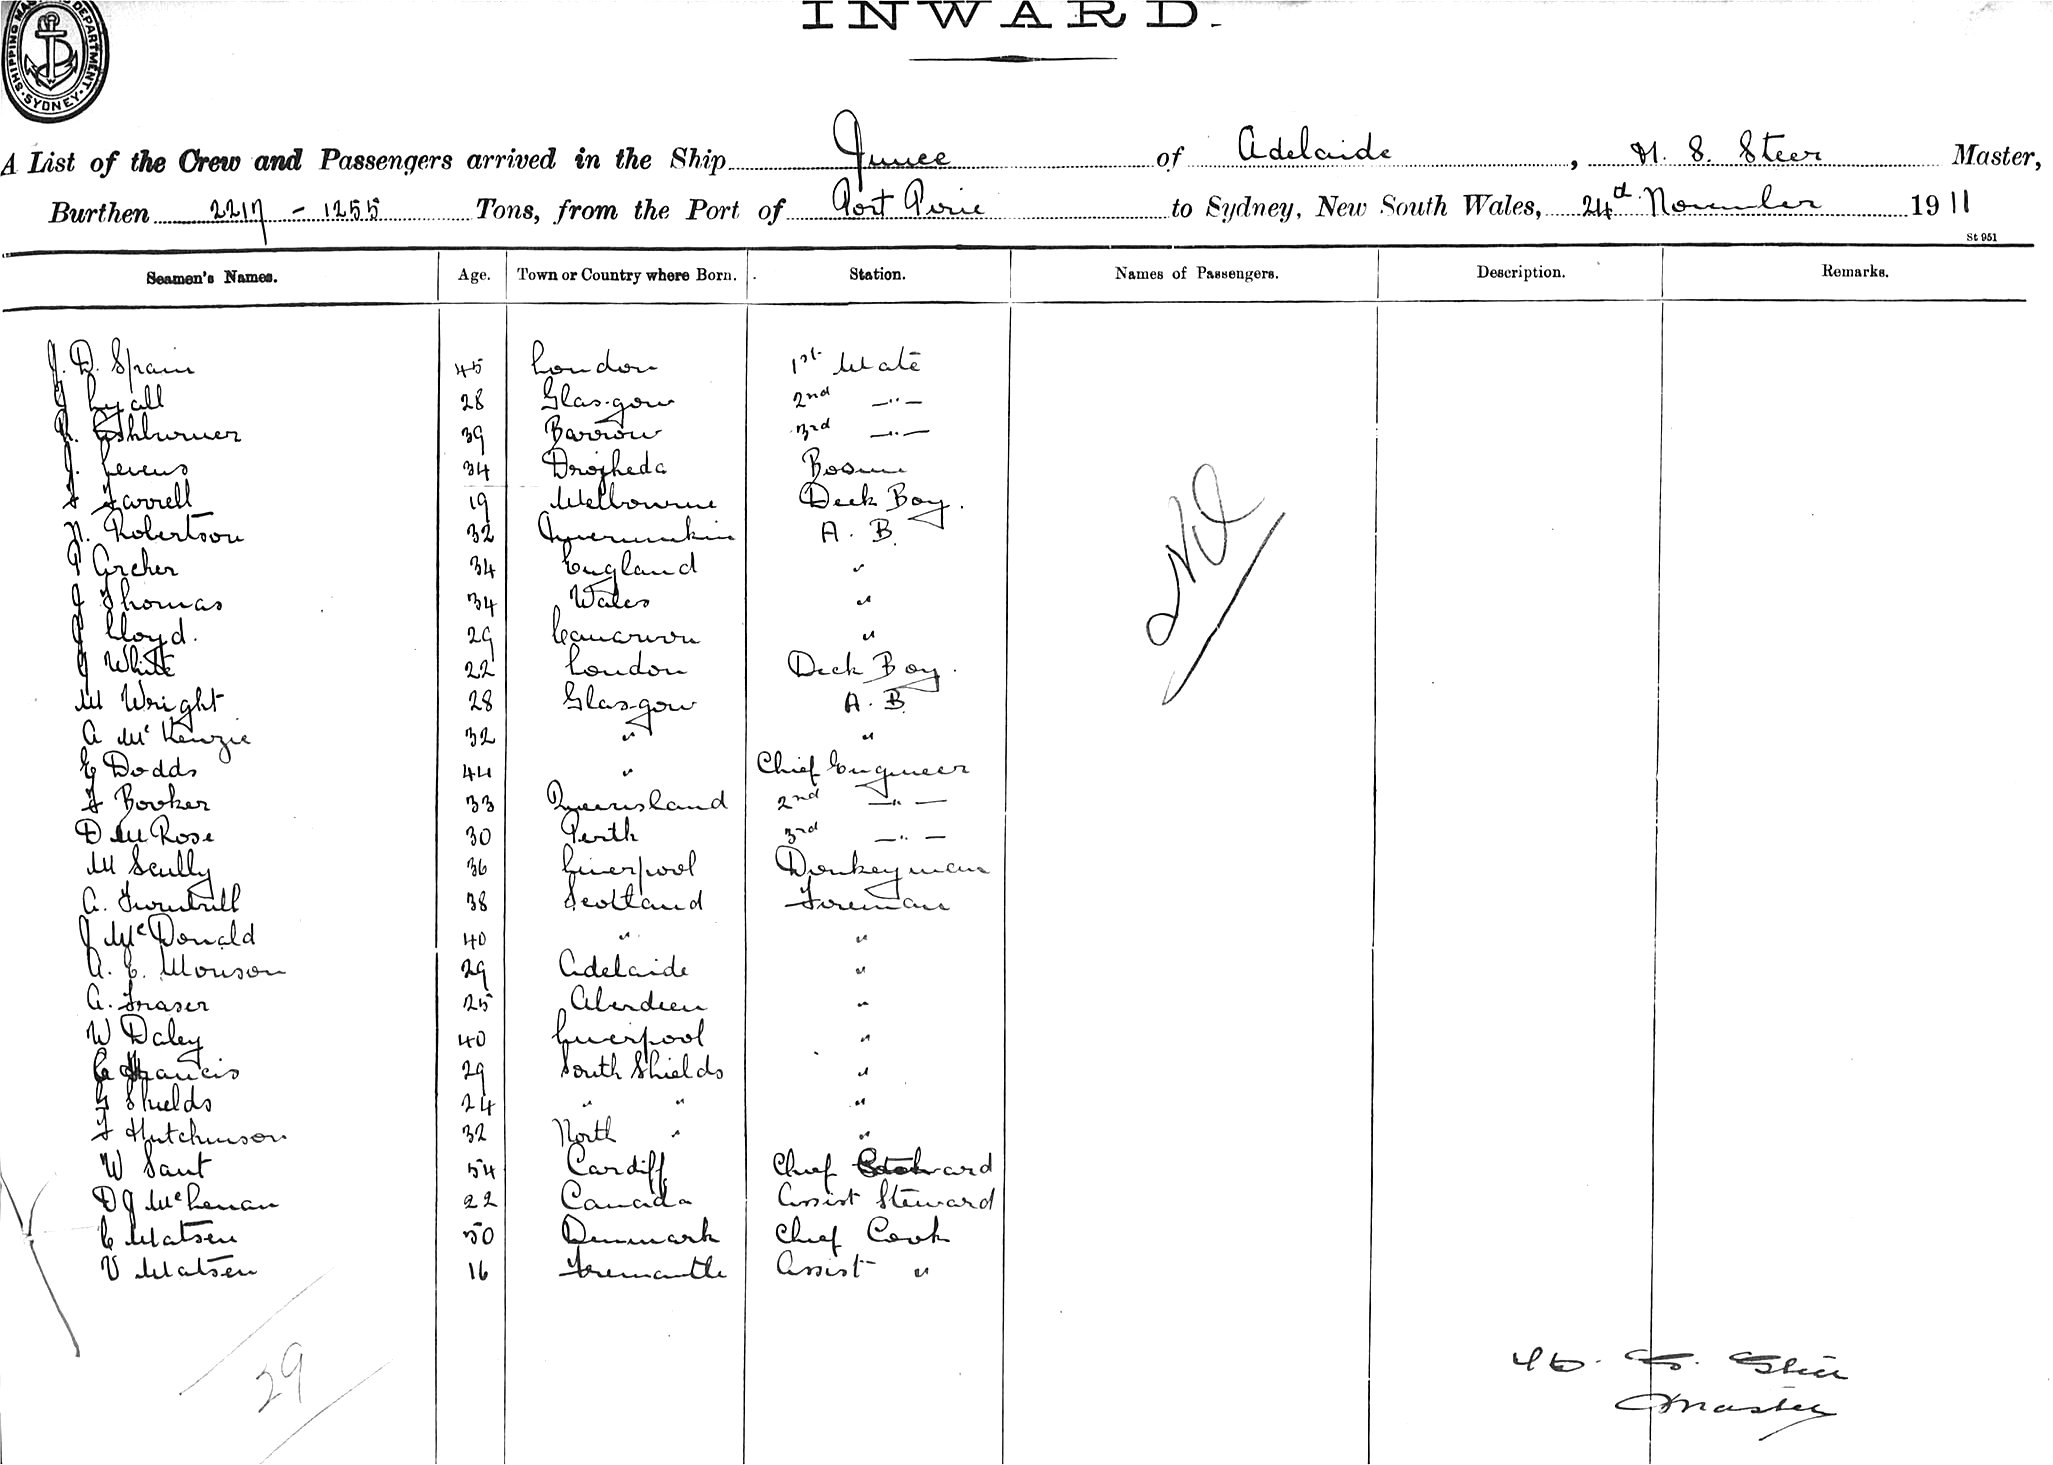 SHIPPING MASTERS DEPARTMENT · SYDNEY ·
INWARD.
A List of the Crew and Passengers arrived in the Ship Junee of Adelaide, H. S. Steer Master,
Burthen 2217 - 1255 Tons, from the Port of Port Pirie to Sydney, New South Wales, 24th November 1911
St 951
Seamen's Names. Age. Town or Country where Born. Station. Names of Passengers. Description. Remarks.
J. D. Spain 45 London 1st Mate
J Lyall 28 Glasgow 2nd —"—
R. Ashburner 39 Barrow 3rd —"—
J. Levens 34 Drogheda Bosun
F Farrell 19 Melbourne Deck Boy.
N. Robertson 32 A. B.
P Archer 34 England "
J Thomas 34 Wales "
J Lloyd. 29 Canarvon "
J White 22 London Deck Boy.
M Wright 28 Glasgow A. B.
A McKenzie 32 " "
E Dodds 44 " Chief Engineer
F Booker 33 Queensland 2nd —"—
D M Rose 30 Perth 3rd —"—
M Scully 36 Liverpool Donkeyman
A. 38 Scotland Fireman
J McDonald 40 " "
A. E. Monson 29 Adelaide "
A. Fraser 25 Aberdeen "
W Daley 40 Liverpool "
C Francis 29 South Shields "
G Shields 24 " " "
F Hutchinson 32 North " "
W Sant 54 Cardiff Chief Steward
D J McLenan 22 Canada Assist Steward
C Matsen 50 Denmark Chief Cook
V Matsen 16 Fremantle Assist "
29
H. S. Steer
Master